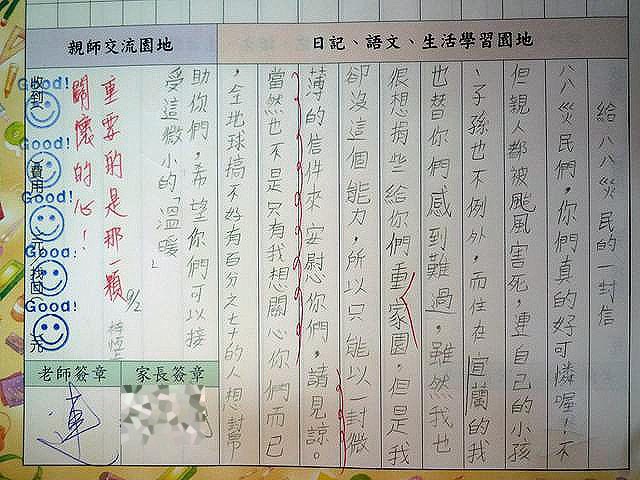 日記、語文、生活學習園地
給八八災民的一封信
八八災民們，你們真的好可憐喔！不
但親人都被颱風害死，連自己的小孩
、子孫也不例外，而住在宜蘭的我
也替你們感到難過，雖然我也
很想捐些給你們重家園，但是我
卻沒這個能力，所以只能以一封微
薄的信件來安慰你們，請見諒。
當然也不是只有我想關心你們而已
，全地球搞不好有百分之七十的人想幫
親師交流園地
助你們，希望你們可以接
受這微小的「溫暖」
重要的是那一顆
9/2
關懷的心！
收到 費用 元 找回 元
Good!
Good!
Good!
Good!
Good!
家長簽章
老師簽章
連